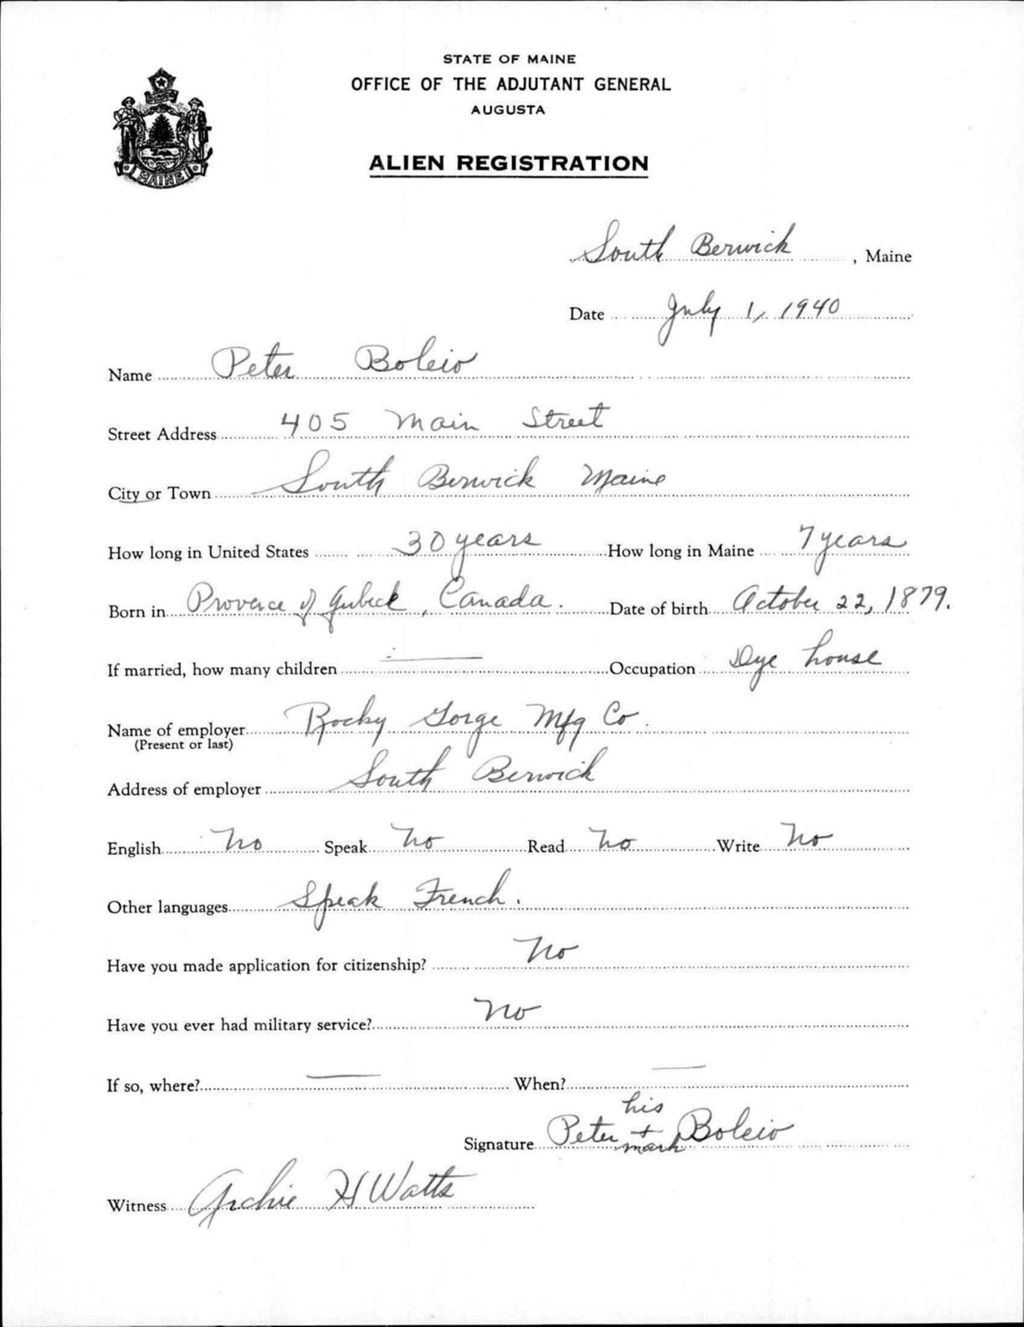 STATE OF MAINE
OFFICE OF THE ADJUTANT GENERAL
AUGUSTA
ALIEN REGISTRATION
MAINE
South Berwick, Maine
Date July 1, 1940
Name Peter Boleio
Street Address 405 Main Street
City or Town South Berwick Maine
How long in United States 30 years How long in Maine 7 years
Born in Provence of Qubeck, Canada. Date of birth October 22, 1879.
If married, how many children — Occupation Dye house
Name of employer Rocky Gorge Mfg Co.
(Present or last)
Address of employer South Berwick
English No Speak No Read No Write No
Other languages Speak French.
Have you made application for citizenship? No
Have you ever had military service? No
If so, where? — When? —
his
Signature Peter + Boleio
mark
Witness Archie H Watts